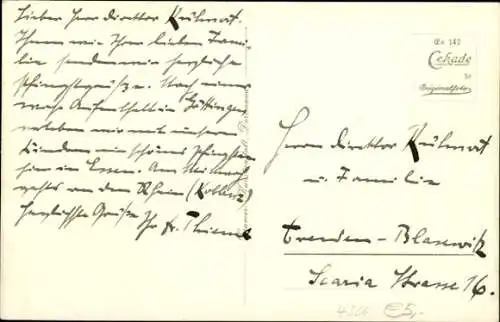 Lieber Herr Direktor Kühnert.
Ihnen und Ihrer lieben Fami-
lie senden wir herzliche
Pfingstgrüße. Nach einer
Aufenthalt in Göttingen
erleben wir mit unseren
Kindern ein schönes Pfingsten
hier in Essen. Am Mittwoch
geht's an den Rhein (Koblenz)
Herzlichste Grüße Ihr Fr. Thieme
Ce 142
Cekade
Originalfoto
Herrn Direktor Kühnert
u. Familie
Dresden-Blasewitz
Icaria Strasse 16.
4366 €5,-